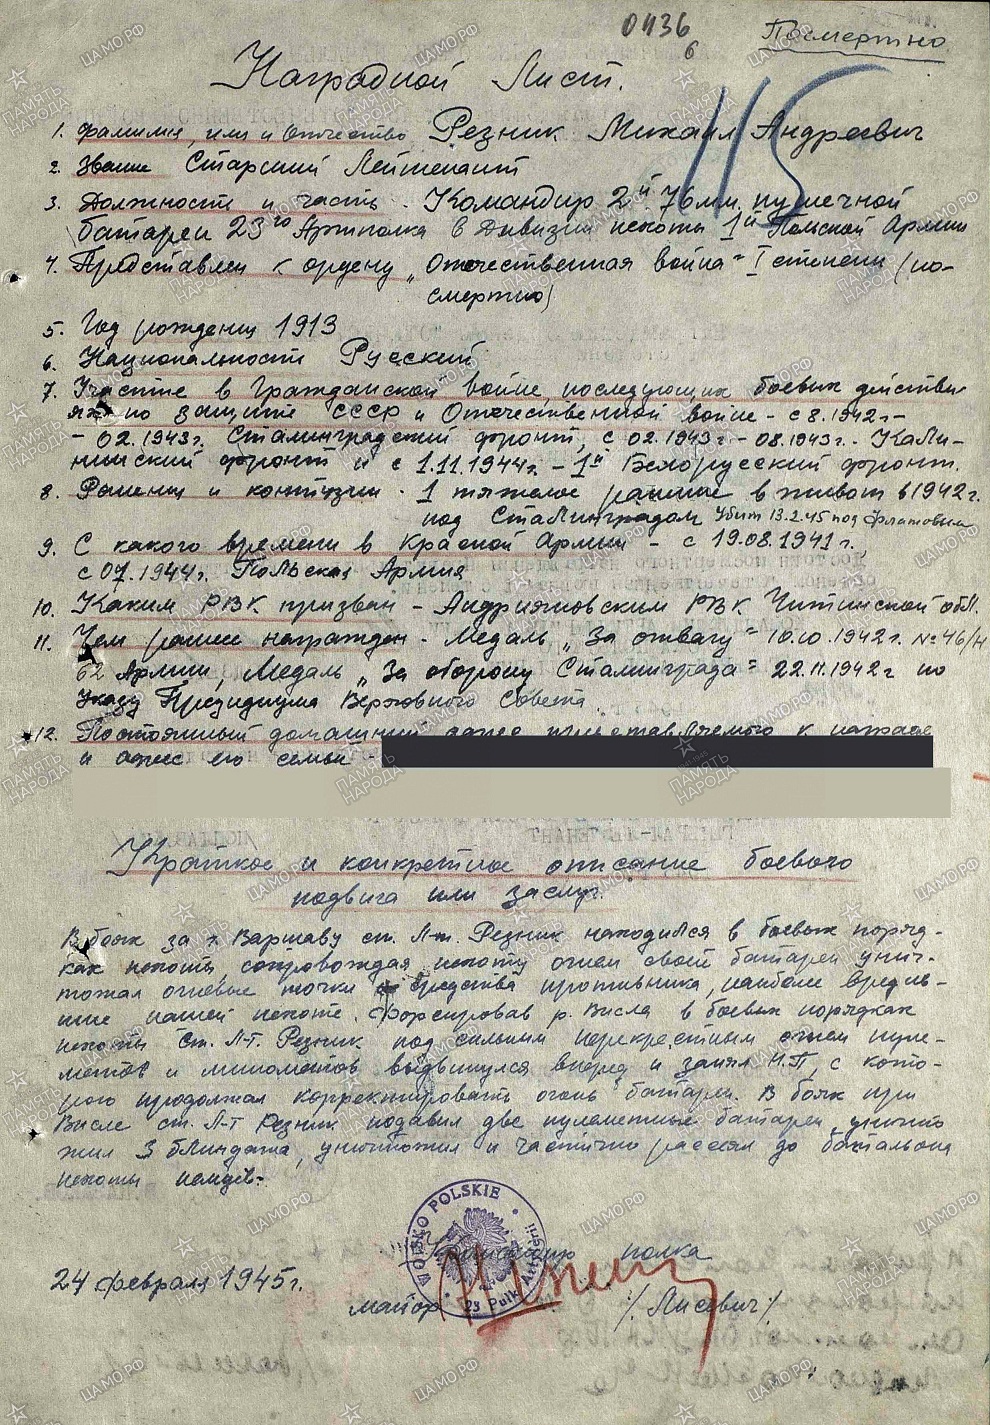 0436
6
Посмертно
115
Наградной Лист.
1. Фамилия, имя и Отчество Резник Михаил Андреевич
2. Звание Старший Лейтенант
3. Должность и часть. Командир 2й 76 мм. пушечной
батареи 23го Артполка 6 Дивизии пехоты 1й Польской Армии
4. Представлен к ордену „Отечественная война" I степени (по-
смертно)
5. Год рождения 1913
6. Национальность Русский
7. Участие в Гражданской войне, последующих боевых действи-
ях по защите СССР и Отечественной войне - с 8.1942г-
- 02.1943г. Сталинградский фронт, с 02.1943г - 08.1943г. - Кали-
нинский фронт и с 1.11.1944г. - 1й Белорусский фронт.
8. Ранения и контузии. 1 тяжелое ранение в живот в 1942 г.
под Сталинградом Убит 13.2.45 под
9. С какого времени в Красной Армии - с 19.08.1941г.,
с 07.1944г. Польская Армия
10. Каким РВК призван - Андрияновским РВК Читинской обл.
11. Чем ранее награжден - Медаль „За отвагу" 10.10.1942г. №46/Н
62 Армии, Медаль „За оборону Сталинграда" 22.11.1942г по
Указу Президиума Верховного Совета.
12. Постоянный домашний адрес представляемого к награде
и адрес его семьи -
Краткое и конкретное описание боевого
подвига или заслуг.
В боях за г. Варшаву ст. Л-т. Резник находился в боевых поряд-
ках пехоты, сопровождая пехоту огнем своей батареи унич-
тожал огневые точки средства противника, наиболе вредив-
шие нашей пехоте. Форсировав р. Висла в боевых порядках
пехоты Ст. Л-т. Резник под сильным перекрестным огнем пуле-
метов и минометов выдвинулся вперед и занял Н.П, с кото-
рого продолжал корректировать огонь батареи. В боях при
Висле ст. Л-т Резник подавил две пулеметные батареи, уничто
жил 3 блиндажа, уничтожил и частично рассеял до батальона
пехоты немцев.
WOJSKO POLSKIE
23 Pułk Artylerii
Командир полка
24 февраля 1945г.
майор /Лисевич/